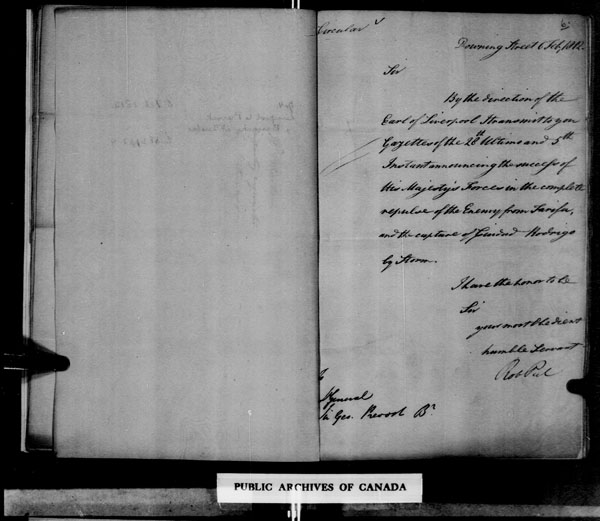 Circular
Downing Street 6 Feb, 1812.
Sir
By the direction of the
Earl of Liverpool I transmit to you
Gazettes of the 28th Ultimo and 5th
Instant announcing the success of
His Majesty's Forces in the complete
repulse of the Enemy from Tarifa,
and the capture of Ciudad Rodrigo
by Storm.
I have the honor to be
Sir
your most obedient
humble Servant
Rob Peel
General
Sir Geo. Prevost Bt
PUBLIC ARCHIVES OF CANADA